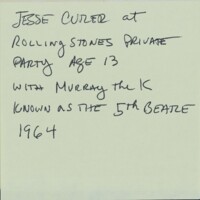 JESSE CUTLER at
ROLLING STONES PRIVATE
PARTY AGE 13
WITH MURRAY the K
KNOWN AS THE 5th BEATLE
1964